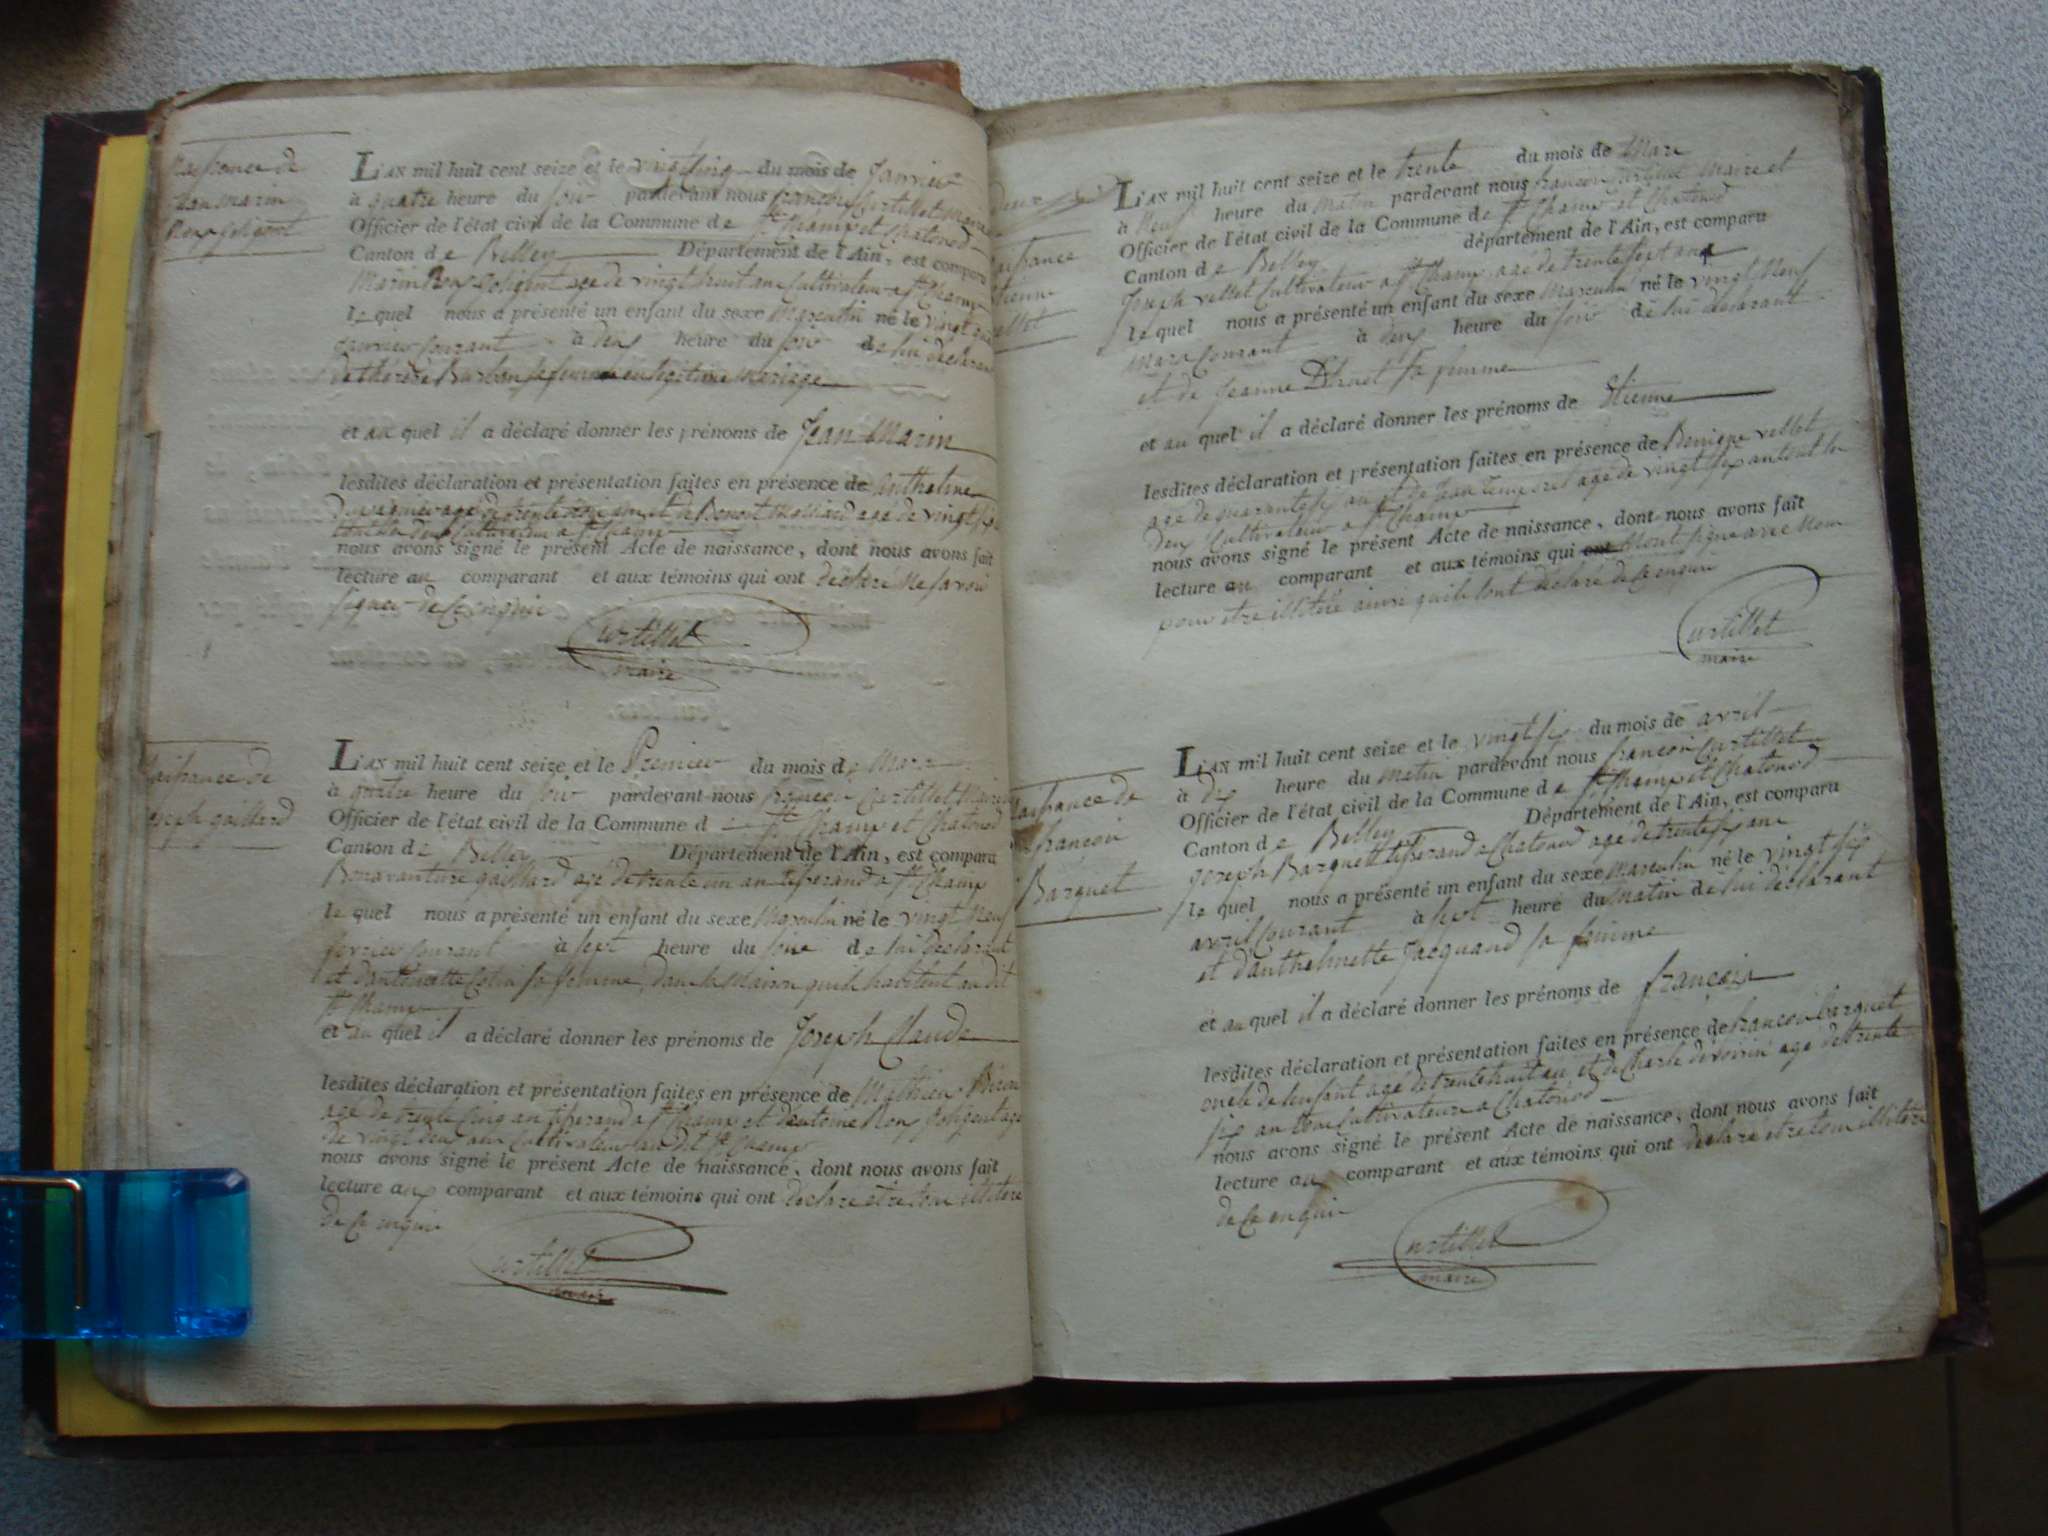 Naissance de
Jean Marin
L'AN mil huit cent seize et le vingt cinq du mois de Janvier
à quatre heure du soir pardevant nous françois Curtillet Maire
Officier de l'état civil de la Commune de St Champ et Chatonod
Canton de Belley Département de l'Ain, est comparu
Marin agé de vingt huit ans Cultivateur a St Champ
lequel nous a présenté un enfant du sexe Masculin né le vingt
Janvier Courant à deux heure du soir de lui déclarant
et de thérèse sa femme en légitime Mariage
et au quel il a déclaré donner les prénoms de Jean Marin
lesdites déclaration et présentation faites en présence de anthelme
agé de trente ans et de Benoit agé de vingt
tout les deux Cultivateur a St Champ
nous avons signé le présent Acte de naissance, dont nous avons fait
lecture au comparant et aux témoins qui ont déclaré Ne savoir
signer de Ce enquis
Curtillet
maire
Naissance de
Joseph gaillard
L'AN mil huit cent seize et le Premier du mois de Mars
à quatre heure du soir pardevant nous françois Curtillet Maire
Officier de l'état civil de la Commune d St Champ et Chatonod
Canton de Belley Département de l'Ain, est comparu
Bonavanture gaillard agé de trente un an tisserand a St Champ
lequel nous a présenté un enfant du sexe Masculin né le vingt Neuf
fevrier Courant à sept heure du soir de lui déclarant
et d'antoinette Colin sa femme, dans la Maison quils habitent au dit
St Champ
et au quel il a déclaré donner les prénoms de Joseph Claude
lesdites déclaration et présentation faites en présence de Mathieu
agé de trente Cinq an tisserand a St Champ et d'antoine agé
de vingt deux ans Cultivateur au dit St Champ
nous avons signé le présent Acte de naissance, dont nous avons fait
lecture aux comparant et aux témoins qui ont déclaré etre tous illitéré
de Ce enquis
Curtillet
maire
Naissance
Etienne
vellet
L'AN mil huit cent seize et le trente du mois de Mars
à Neuf heure du matin pardevant nous françois Curtillet Maire et
Officier de l'état civil de la Commune de St Champ et Chatonod
Canton de Belley département de l'Ain, est comparu
Joseph vellet Cultivateur a St Champ agé de trente sept ans
lequel nous a présenté un enfant du sexe Masculin né le vingt Neuf
Mars Courant à deux heure du soir de lui déclarant
et de Jeanne sa femme
et au quel il a déclaré donner les prénoms de Etienne
lesdites déclaration et présentation faites en présence de vellet
agé de quarante six an et de Jean agé de vingt six an tout les
deux Cultivateur a St Champ
nous avons signé le présent Acte de naissance, dont nous avons fait
lecture au comparant et aux témoins qui ont N'ont signé avec Nous
pour etre illitéré ainsi quils l'ont déclaré de Ce enquis
Curtillet
maire
Naissance de
françois
Barquet
L'AN mil huit cent seize et le vingt six du mois de avril
à dix heure du Matin pardevant nous françois Curtillet
Officier de l'état civil de la Commune de St Champ et Chatonod
Canton de Belley Département de l'Ain, est comparu
Joseph Barquet tisserand a Chatonod agé de trente six ans
lequel nous a présenté un enfant du sexe Masculin né le vingt six
avril Courant à sept heure du Matin de lui déclarant
et d'anthelmette Jacquand sa femme
et au quel il a déclaré donner les prénoms de françois
lesdites déclaration et présentation faites en présence de françois Barquet
oncle de l'enfant agé de trente huit an et de Charle agé de trente
six an tous Cultivateur a Chatonod
nous avons signé le présent Acte de naissance, dont nous avons fait
lecture aux comparant et aux témoins qui ont déclaré etre tous illitéré
de Ce enquis
Curtillet
maire